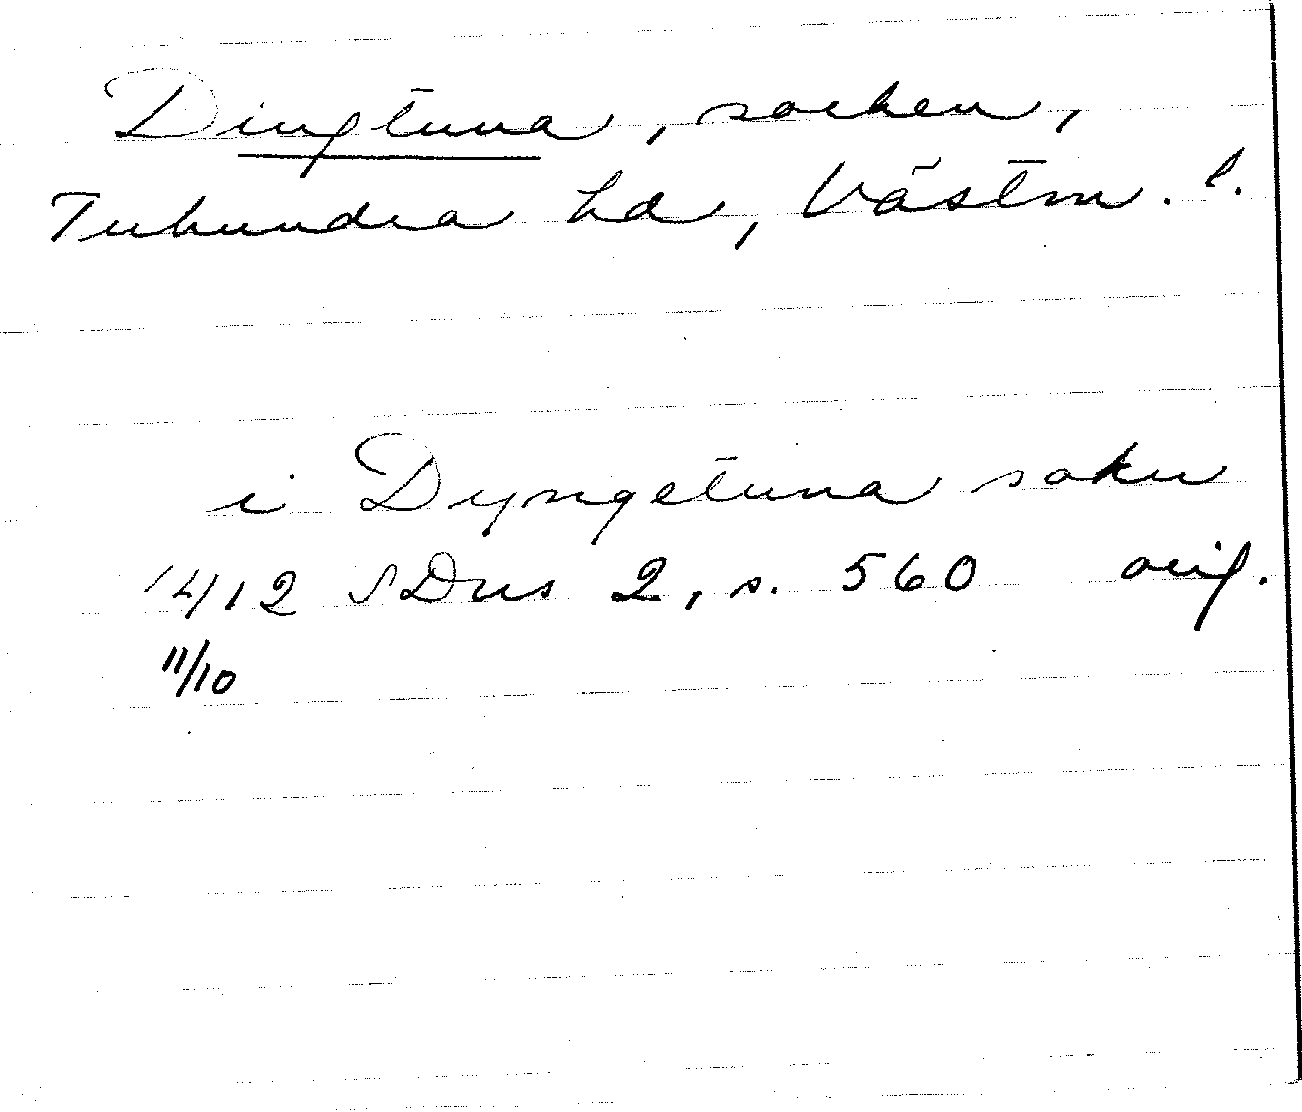 Dingtuna, socken,
Tuhundra hd, Västm. l.
i Dyngetuna sokn
1412 SDns 2, s. 560 orig.
11/10